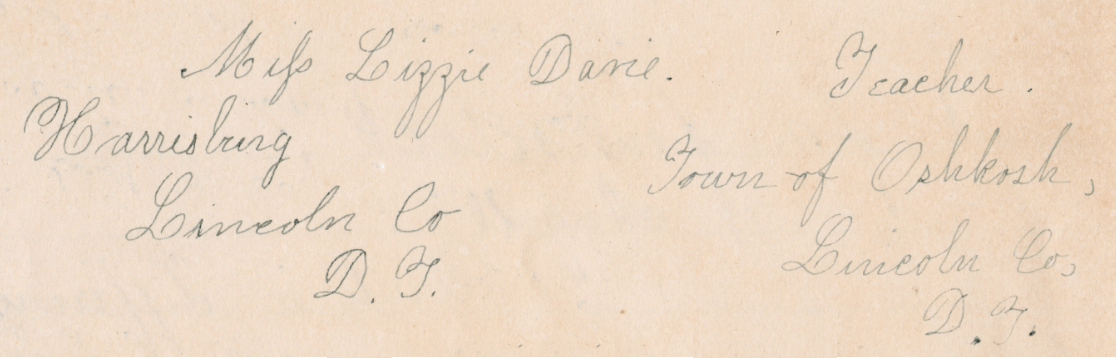 Miss Lizzie Davie. Teacher.
Harrisburg
Town of Oshkosh,
Lincoln Co
Lincoln Co,
D. T.
D. T.